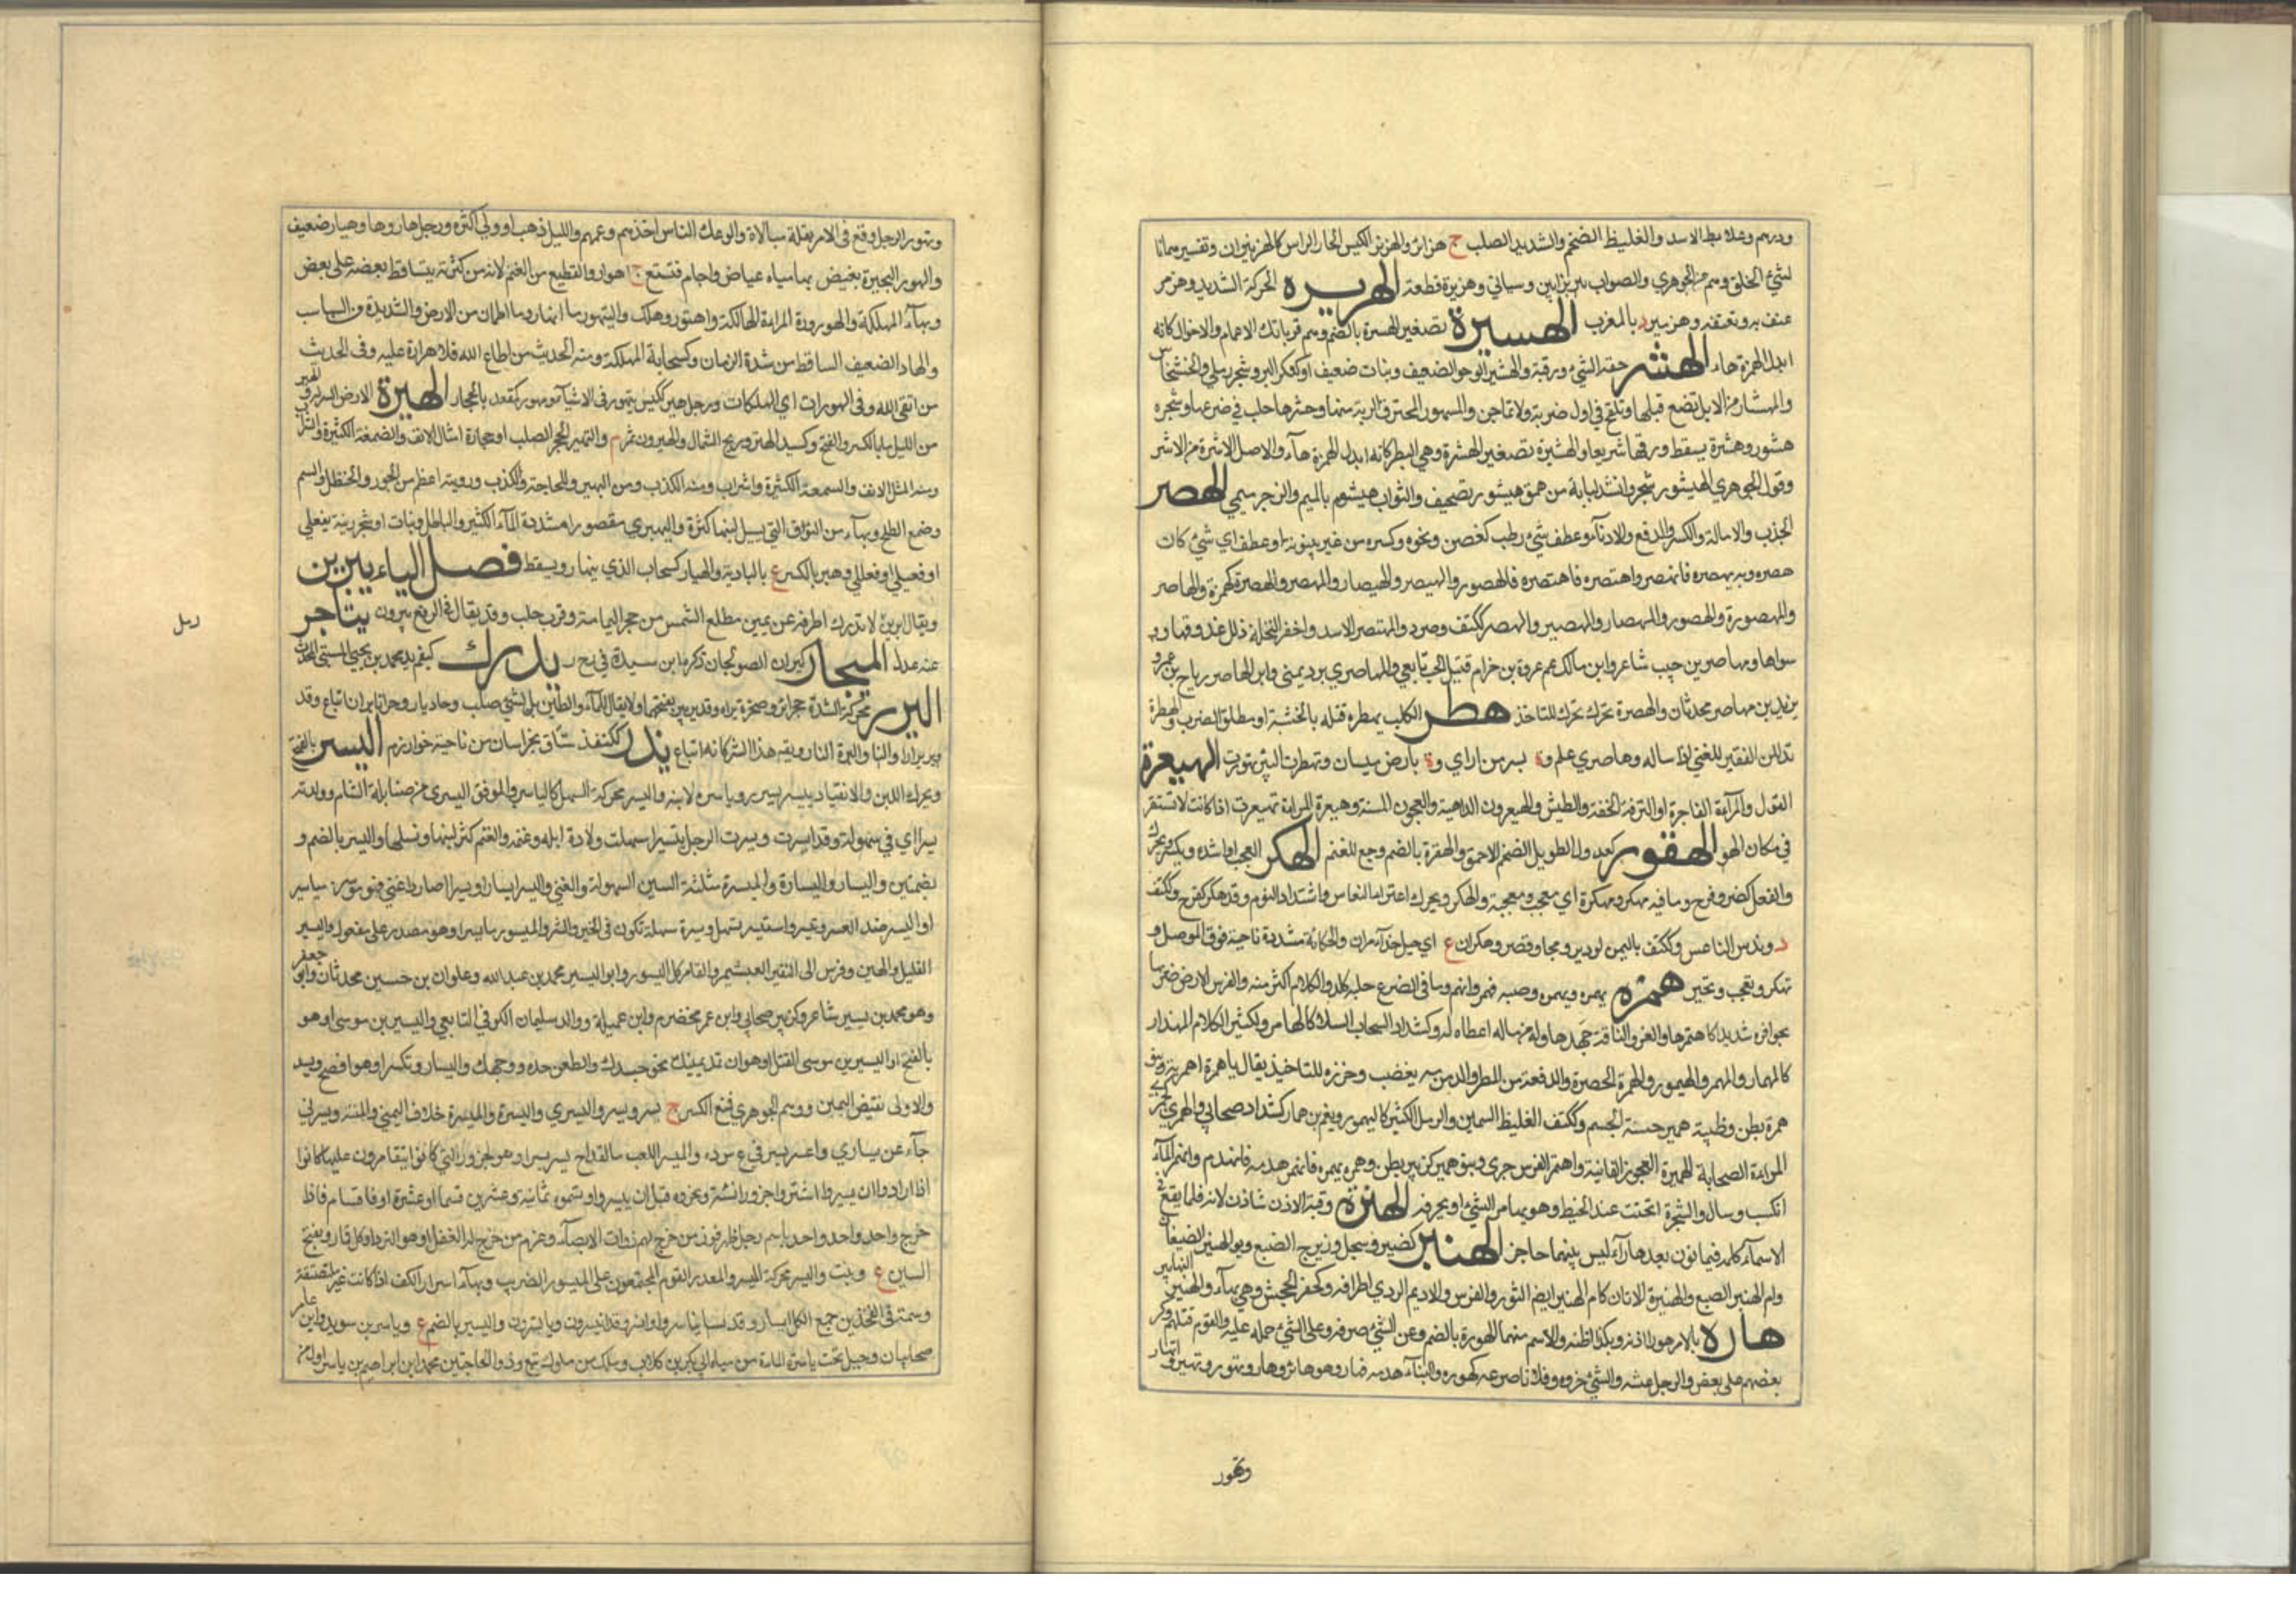 ودرهم وعلابط الاسد والغليظ الضخم والشديد الصلب ج هزابر والهزنبر الكيس الحار الراس كالهزنبران وتفسيرهما
لسيئ الخلق وهم من الجوهري والصواب بزايين وسياتي وهزبره قطعه الهزيره الحركة الشديد وهزمر
عنف به وتعتعه وهزمير د بالمغرب الهسيرة تصغير الهسرة بالضم وهم قراباتك الاعمام والاخوال كانه
ابدل الهمزة هاء الهشر خفة الشيء ورقته والهيشر الرخو الضعيف ونبات ضعيف او كنكر البر وشجر رملي والخشخاش
والمهشار من الابل تضع قبلها وتلقح في اول ضربة ولا تماجن والمهشور المحترق الرية منها وهشرها حلب في ضرعها وشجره
هشور وهشرة يسقط ورقها سريعا والهشيرة تصغير الهشرة وهي البطر كانه ابدل الهمزة هاء والاصل الاشرة من الاشر
وقول الجوهري الهيشور شجر وانشد لبابة من همق هيشور تصحيف والثواب هيشوم بالميم والرجز ميمي الهصر
الجذب والامالة والكسر والدفع والادناء وعطف شيء رطب كغصن ونحوه وكسره من غير بينونة او عطف اي شيء كان
هصره وبه يهصره فانهصر واهتصره فاهتصره فالهصور والهيصر والهيصار والمهصر والهصرة كهمزة والهاصر
والهصورة والهصور والمهصار والمهصير والهصر ككتف وصرد والمهتصر الاسد واهصر النخلة ذلل عذوقها و
سواها ومهاصر بن حبيب شاعر وابن مالك عم عروة بن حزام قتيل الحب تابعي والمهاصري برد يمني وابو الهاصر رياح بن عمرو
يزيد بن مهاصر محدثان والهصرة تحرك خرزة للتاخذ هطر الكلب يهطره قتله بالخشبة او مطلق الضرب والهطرة
تذلل الفقير للغني اذا ساله وهاصري علم وة بسر من راي وة بارض ميسان وتهطرت البئر تهورت الهيعرة
الغول والمرأة الفاجرة او النزقة الخفة والطيش والهيعرون الداهية والعجون المسنة وهيعرة المراة تهيعرت اذا كانت لا تستقر
في مكان الهو الهقور كعدول الطويل الضخم الاحمق والهقرة بالضم وجع للغنم الهكر العجب او اشده ويكسر ويحرك
والفعل كضر وفرح وما فيه مهكر ومهكرة اي معجب ومعجبة والهكر ويحرك اعتراء النعاس واشتداد النوم وقد هكر كفرح وككتف
د وندس الناعس وككتف باليمن او دير ومجا وقصر وهكران ع اي جبل حذاء مران والهكارية مشددة ناحية فوق الموصل و
تهكر وتعجب وتحير همره يهمره ويهمره وصبه فهمر وانهمر وما في الضرع حلبه كله والكلام اكثر منه والفرس الارض ضربها
بحوافره شديدا كاهتمرها والغرز الناقة جهدها وله من ماله اعطاه له وكشداد السحاب السلال كالهامر والكثير الكلام المهذار
كالمهمار والمهمر والهيمور والهمرة الحصرة والدفعة من المطر والدمدمة بغضب وخرزه للتاخيذ يقال ياهمرة اهمريه وبنو
همرة بطن وظبية همير حسنة الجسم وككتف الغليظ السمين والرمل الكثير كاليهمور ويغم بن همار كشداد صحابي والهمري كجمزى
المراءة الصخابة والهميرة العجوز الفانية واهتمر الفرس جرى وبنو همير كزبير بطن وهمره يهمره فانهمر هدمه فانهدم وانهمر الماء
انكسب وسال والشجرة انحتت عند الخبط وهو يهامر الشيء اي يجرفه الهنرة وقبة الاذن شاذن لانه قلما يقع في
الاسماء كلمة فيها نون بعدها راء ليس بينهما حاجز الهنبر كصنبر وسبحل وزبرج الضبع وابو الهنبر الضبعان
وام الهنبر الضبع والهنبرة الاتان كام الهنبر ايضا الثور والفرس والاديم الردي اطرافه وكخنصر الجحيش وهي بهاء والهنبر
هاره بالامر هورا اذنه وبكذا ظنه والاسم منهما الهورة بالضم وعن الشيء صرفه وعلى الشيء حمله عليه والقوم قتلهم وكبر
بعضهم على بعض والرجل غشه والشيء حزره وفلانا صرعه كهوره والبناء هدمه فهار وهو هائر وهار وتهور وتهير وانهار
وتهور
وتهور الرجل وقع في الامر بقلة مبالاة والوعك الناس اخذهم وعمهم والليل ذهب او ولى اكثره ورجل هار وهار وهيار ضعيف
والهور البحيرة بغيض بها مياه غياض واجام فتتسع ج اهوار والقطيع من الغنم لانه من كثرته يتساقط بعضه على بعض
وبهاء المهلكة والهورورة المراة الهالكة واهتور وهلك والتيهور ما انهار وما اطمان من الارض والشديدة من السباسب
والهاد الضعيف الساقط من شدة الزمان وكسحابة المهلكة ومنه الحديث من اطاع الله فلا هوارة عليه وفي الحديث
من اتقى الله وقي الهورات اي المهلكات ورجل هير ككيس يتهور في الاشياء ومهور كمقعد بالحجاز الهيرة الارض السهلة
من الليل بالكسر والفتح وكسيد الهتر وريح الشمال والهيرون تمر م والتهير الحجر الصلب او حجارة امثال الاكف والصمغة الكثيرة
ومنه المثل الانف والسمعة الكثيرة واشراب ومنه الكذب ومن اليهير واللجاجة والكذب ودويبة اعظم من الجرذ والحنظل والسم
وضمغ الطلح وبهاء من النوق التي يسيل لبنها كثرة واليهيري مقصورا مشددة الماء الكثير والباطل ونبات او شجر بنته يفعلي
او فعيلي او فعللي وهير بالكسر ع بالبادية والهيار كسحاب الذي ينهار ويسقط فصل الياء يبرين
ويقال ابرين لا تدرك اطرافه عن يمين مطلع الشمس من حجر اليمامة وقرب حلب وقد يقال في الرفع يبرون يتاجر
عنه عدل الميجار كميزان الصولجان ذكره ابن سيدة في ح ر يدرك كبقم يد محمد بن يحيى المستى المحدث
اليرر محركة الشدة حجر اير وصخرة يراء وقد ير يير بفتحهما ولا يقال للماء والطين بل لشيء صلب وحار يار وحران يران اتباع وقد
يريرارا والنا واليرة النار ويقه هذا الشر كانه اتباع يندر ككنفذ سناق بخراسان من ناحية خوارزم اليسر بالفتح
ويحرك اللين والانقياد ييسر ييسر وياسره لاينه واليسر محركة السهل كالياسر والموفق اليسري من صنابلة الشام وولدته
يسرا اي في سهولة وقد ايسرت ويسرت الرجل تيسيرا سهلت ولادة ابله وغنمه والغنم كثر لبنها ونسلها واليسر بالضم و
بضمتين واليسار واليسارة والميسرة مثلثة السين السهولة والغنى وايسر ايسارا ويسرا صار ذا غنى فهو موسر ج مياسير
او اليسر ضد العسر وتيسر واستيسر تسهل ويسره سهله تكون في الخير والشر والميسور ما يسر او هو مصدر على مفعول واليسير
القليل والهين وفرس ابي النقير العبشمي والقامر كاليسور وابو اليسير محمد بن عبد الله وعلوان بن حسين محدثان وابو جعفر
وهو محمد بن يسير شاعر وكزبير صحابي وابن عمر مخضرم وابن عميلة ووالد سليمان الكوفي التابعي واليسير بن موسى او هو
بالفتح او اليسير بن موسى الفتل او هوان تمد يمينك نحو جسدك والطعن حذو وجهك واليسار وتكسر او هو افصح ويسد
والاولى نقيض اليمين ووهم الجوهري فمنع الكسر ج يسر ويسر واليسري واليسرة والميسرة خلاف اليمنى والميمنة ويسرني
جاء عن يساري واعسر يسر في ع س ر والميسر اللعب بالقداح يسر ييسر او هو الجزور التي كانوا يتقامرون عليها كانوا
اذا ارادوا ان ييسروا اشتروا جزورا نسئة ونحروه قبل ان ييسروا وقسموه ثمانية وعشرين قسما او عشرة اقسام فاذا
خرج واحد واحد واحد باسم رجل ظهر فوز من خرج لهم ذوات الانصباء وغرم من خرج له الغفل او هو النرد او كل قمار وبفتح
السين ع ونبت واليسر محركة الميسر والمعدر القوم المجتمعون على الميسور الضريب وبهاء اسرار الكف اذا كانت غير ملتصقة
وسمة في الفخذين جمع الكل ايسار وياسرين سويد وابن عامر
صحابيان وجبل تحت ياسرة لماءة من مياه ابي بكر بن كلاب وملك من ملوك تبع وذو الحاجتين محمد بن ابراهيم بن ياسر اول من
رمل